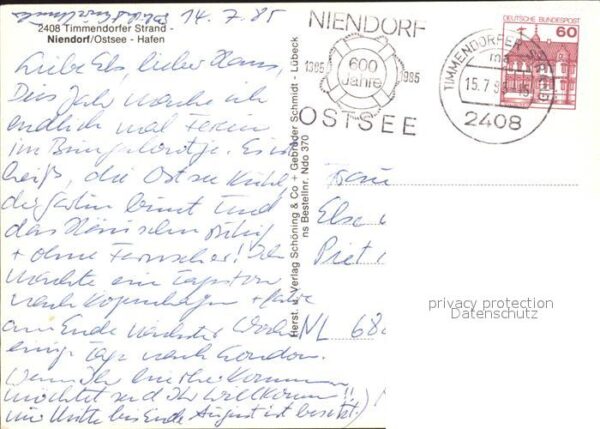 14.7.85
2408 Timmendorfer Strand -
Niendorf/Ostsee - Hafen
Liebe Els, lieber Hans,
Dies Jahr mache ich
endlich mal Ferien
im Bungalowtje. Es ist
heiß, die Ostsee kühl,
der Garten bunt und
das Häuschen ruhig
+ ohne Fernseher! Ich
machte eine Tagestour
nach Kopenhagen +
am Ende nächster Woche
einige Tage nach London.
Wenn Ihr hierher kommen
möchtet seid Ihr willkommen!!
nur Mitte bis Ende August ist besetzt.)
Herst. u. Verlag Schöning & Co + Gebrüder Schmidt - Lübeck
ns Bestellnr. Ndo 370
NIENDORF
1385 600 Jahre 1985
OSTSEE
TIMMENDORFER
15.7.85-15
2408
DEUTSCHE BUNDESPOST
60
Frau
Else
Piet
NL 68
privacy protection
Datenschutz